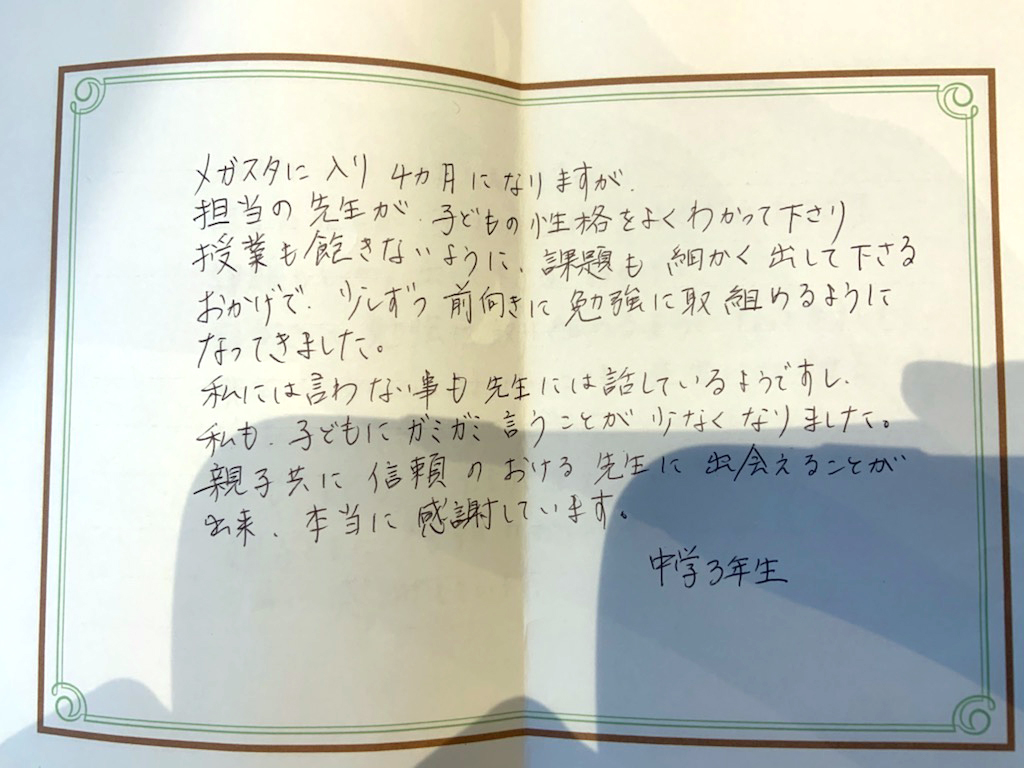 メガスタに入り 4カ月になりますが、
担当の先生が、子どもの性格をよくわかって下さり
授業も飽きないように、課題も細かく出して下さる
おかげで、少しずつ前向きに勉強に取組めるように
なってきました。
私には言わない事も先生には話しているようですし、
私も、子どもにガミガミ言うことが少なくなりました。
親子共に信頼のおける先生に出会えることが
出来、本当に感謝しています。
中学3年生